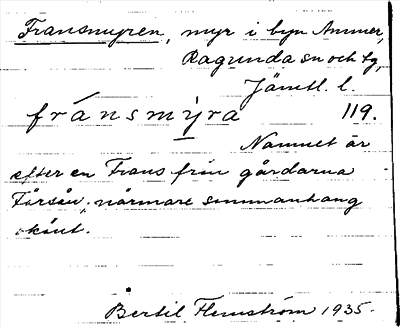 Fransmyren, myr i byn Ammer,
Ragunda sn och tg,
Jämtl. l.
fránsmy̱ra 119.
Namnet är
efter en Frans från gårdarna
Färsån, närmare sammanhang
okänt.
Bertil Flemström 1935.